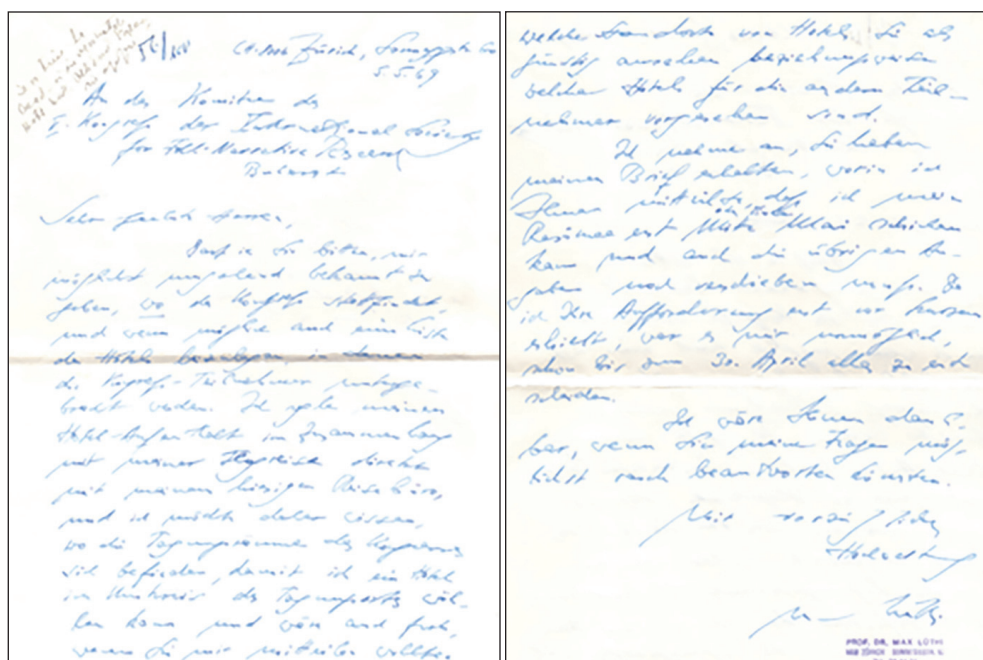 Zürich, Sonneggstr.
5.5.69
An das Komitee des
V. Kongress der International Society
for Folk-Narrative Research
Bukarest
Sehr geehrte Herren,
Darf ich Sie bitten, mir
möglichst umgehend bekannt zu
geben, wo der Kongress stattfindet,
und wenn möglich auch eine Liste
der Hotels beizulegen, in denen
die Kongress-Teilnehmer unterge-
bracht werden. Ich regle meinen
Hotel-Aufenthalt im Zusammenhang
mit meiner Flugreise direkt
mit meinem hiesigen Reisebüro,
und ich möchte daher wissen,
wo die Tagungsräume des Kongresses
sich befinden, damit ich ein Hotel
im Umkreis des Tagungsortes wäh-
len kann und wäre auch froh,
wenn Sie mir mitteilen wollten,
welche Standorte von Hotels Sie als
günstig ansehen beziehungsweise
welche Hotels für die andern Teil-
nehmer vorgesehen sind.
Ich nehme an, Sie haben
meinen Brief erhalten, worin ich
Ihnen mitteilte, dass ich mein
Resümee erst Mitte Mai schicken
kann und auch die übrigen An-
gaben noch verschieben muss. Da
ich Ihre Aufforderung erst vor kurzem
erhielt, war es mir unmöglich,
schon bis zum 30. April alles zu ent-
scheiden.
Ich wäre Ihnen dank-
bar, wenn Sie meine Fragen mög-
lichst rasch beantworten könnten.
Mit vorzüglicher
Hochachtung
Max Lüthi
PROF. DR. MAX LÜTHI
ZÜRICH